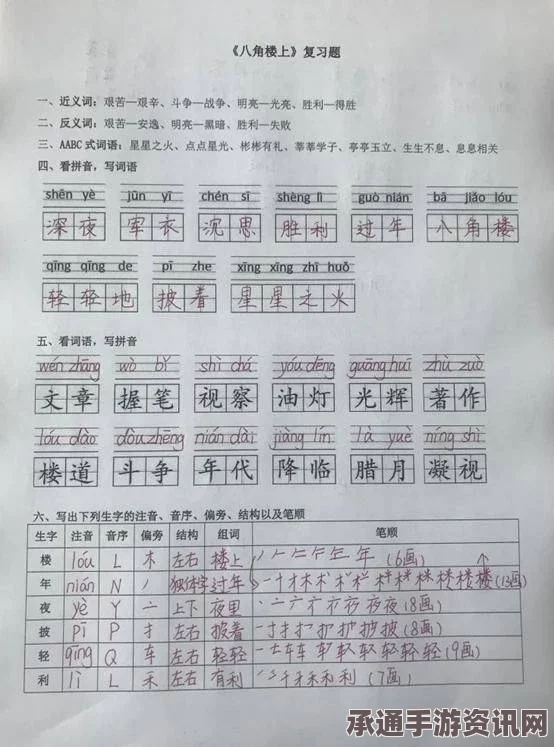 《八角楼上》复习题
一、近义词：艰苦—艰辛、斗争—战争、明亮—光亮、胜利—得胜
二、反义词：艰苦—安逸、明亮—黑暗、胜利—失败
三、AABC 式词语：星星之火、点点星光、彬彬有礼、莘莘学子、亭亭玉立、生生不息、息息相关
四、看拼音，写词语
shēn yè jūn yī chén sī shèng lì guò nián bā jiǎo lóu
深夜 军衣 沉思 胜利 过年 八角楼
qīng qīng de pī zhe xīng xīng zhī huǒ
轻轻地 披着 星星之火
五、看词语，写拼音
wén zhāng wò bǐ shì chá yóu dēng guāng huī zhù zuò
文章 握笔 视察 油灯 光辉 著作
lóu dào dòu zhēng nián dài jiàng lín là yuè níng shì
楼道 斗争 年代 降临 腊月 凝视
六、写出下列生字的注音、音序、偏旁、结构以及笔顺
生字 注音 音序 偏旁 结构 组词 笔顺
楼 lóu L 木 左右 楼上 年(6画)
年 nián N 丿 独体字 过年 楼(13画)
夜 yè Y 亠 上下 夜里 夜(8画)
披 pī P 扌 左右 披着 披(8画)
轻 qīng Q 车 左右 轻轻 轻(9画)
利 lì L 禾 左右 有利 利(7画)
承通手游资讯网